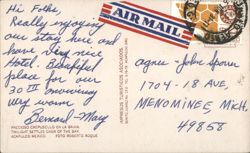 Hi Folks,
Really enjoying
our stay here and
have very nice
Hotel. Beautiful
place for our
30th anniversary
very warm
Bernard - Mary
PRECIOSO CREPUSCULO EN LA BAHIA.
TWILIGHT SETTLES OVER THE BAY.
ACAPULCO MEXICO. FOTO ROBERTO ROQUE
IMPRESOS TURISTICOS ASOCIADOS
AIR MAIL
Agnes - John
1704 - 18 AVE,
MENOMINEE MICH,
49858